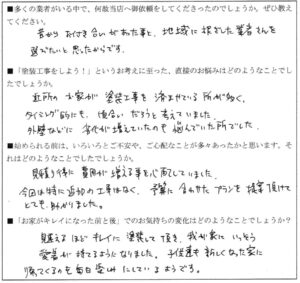 ■多くの業者がいる中で、何故当店へ御依頼をしてくださったのでしょうか。ぜひ教え
てください。
昔からお付き合いがあった事と、地域に根ざした業者さんを
選びたいと思ったからです。
■「塗装工事をしよう！」というお考えに至った、直接のお悩みはどのようなことでし
たでしょうか。
近所の家が塗装工事を済ませている所が多く、
タイミング的にも頃合いだろうと考えていました。
外壁などに劣化が増えていたのも悩んでいた所でした。
■始められる前は、いろいろとご不安や、ご心配なことが多々あったかと思います。そ
れはどのようなことでしたでしょうか。
見積り時に費用が増える事を心配していました。
今回は特に追加の工事はなく、予算に合わせたプランを提案頂けて
とても助かりました。
■「お家がキレイになった前と後」でのお気持ちの変化はどのようなことでしょうか？
見違えるほどキレイに塗装して頂き、我が家にいっそう
愛着が持てるようになりました。子供達も新しくなった家に
帰ってくるのを毎日楽しみにしているようです。